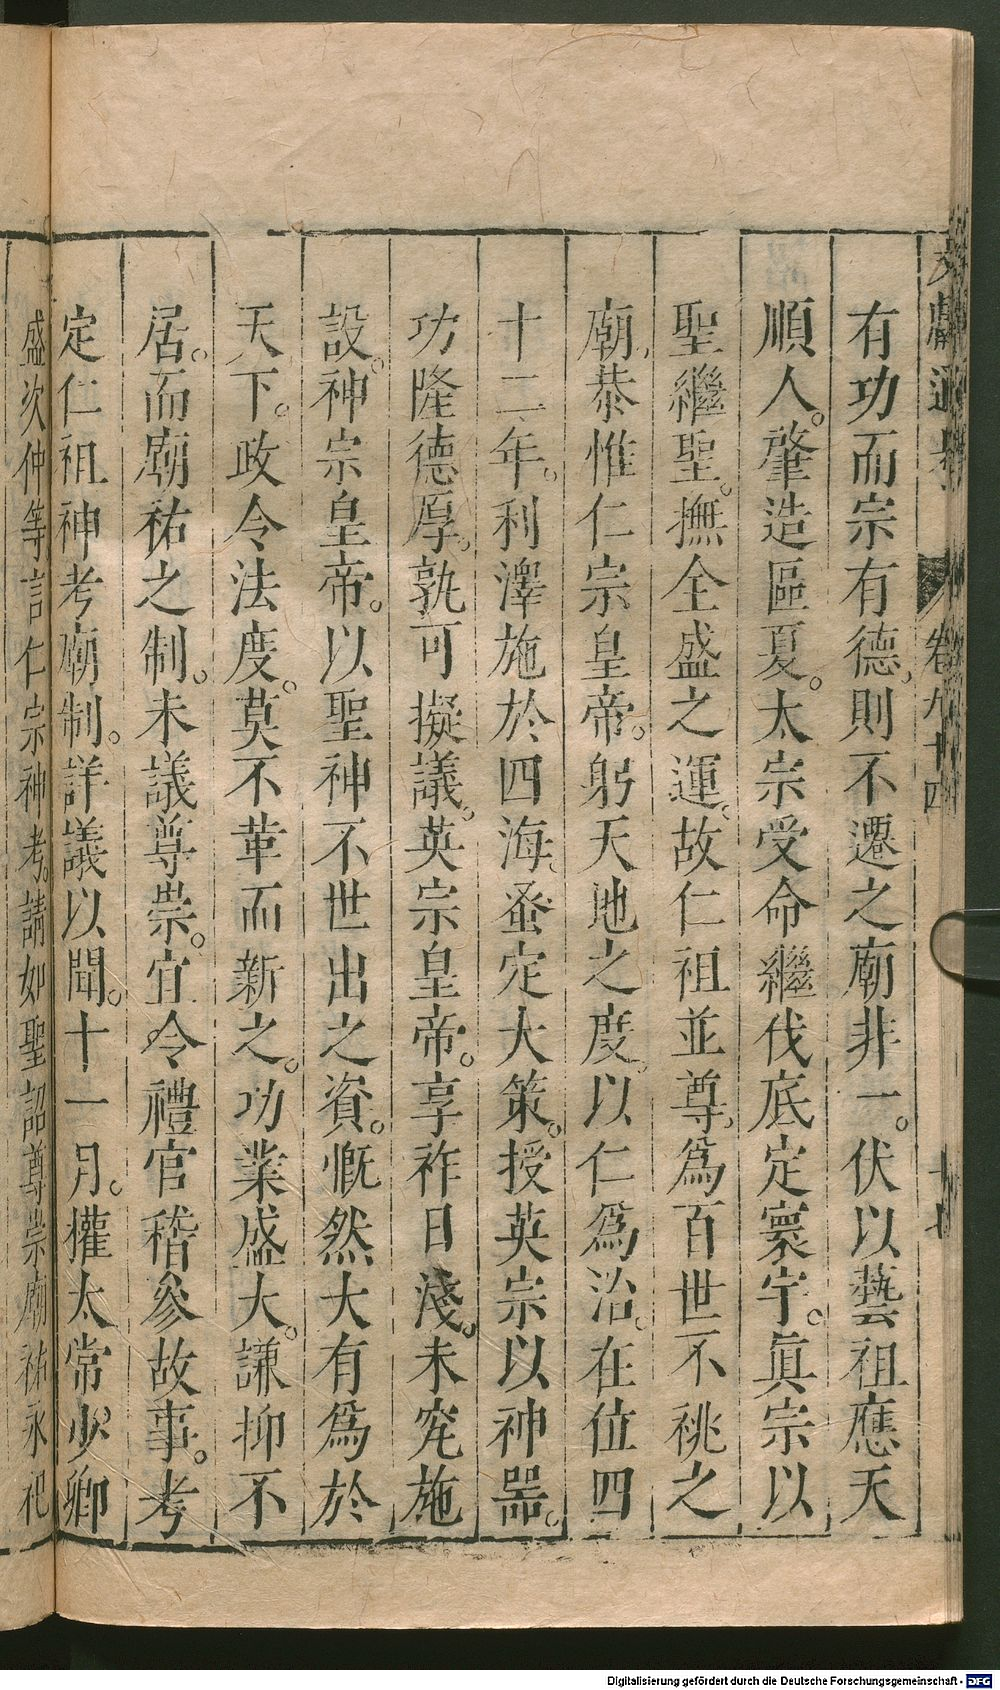 文獻通考 卷九十四 十七
有功而宗有德則不遷之廟非一。伏以藝祖應天
順人。肇造區夏。太宗受命繼伐底定寰宇。眞宗以
聖繼聖。撫全盛之運。故仁祖並尊。爲百世不祧之
廟。恭惟仁宗皇帝。躬天地之度。以仁爲治。在位四
十二年。利澤施於四海。蚤定大策。授英宗以神器。
功隆德厚。孰可擬議。英宗皇帝。享祚日淺。未究施
設。神宗皇帝。以聖神不世出之資。慨然大有爲於
天下。政令法度。莫不革而新之。功業盛大。謙抑不
居。而廟祐之制。未議尊崇。宜令禮官稽參故事。考
定仁祖神考廟制。詳議以聞。十一月。權太常少卿
盛次仲等言仁宗神考。請如聖詔尊崇廟祐永祀
Digitalisierung gefördert durch die Deutsche Forschungsgemeinschaft - DFG